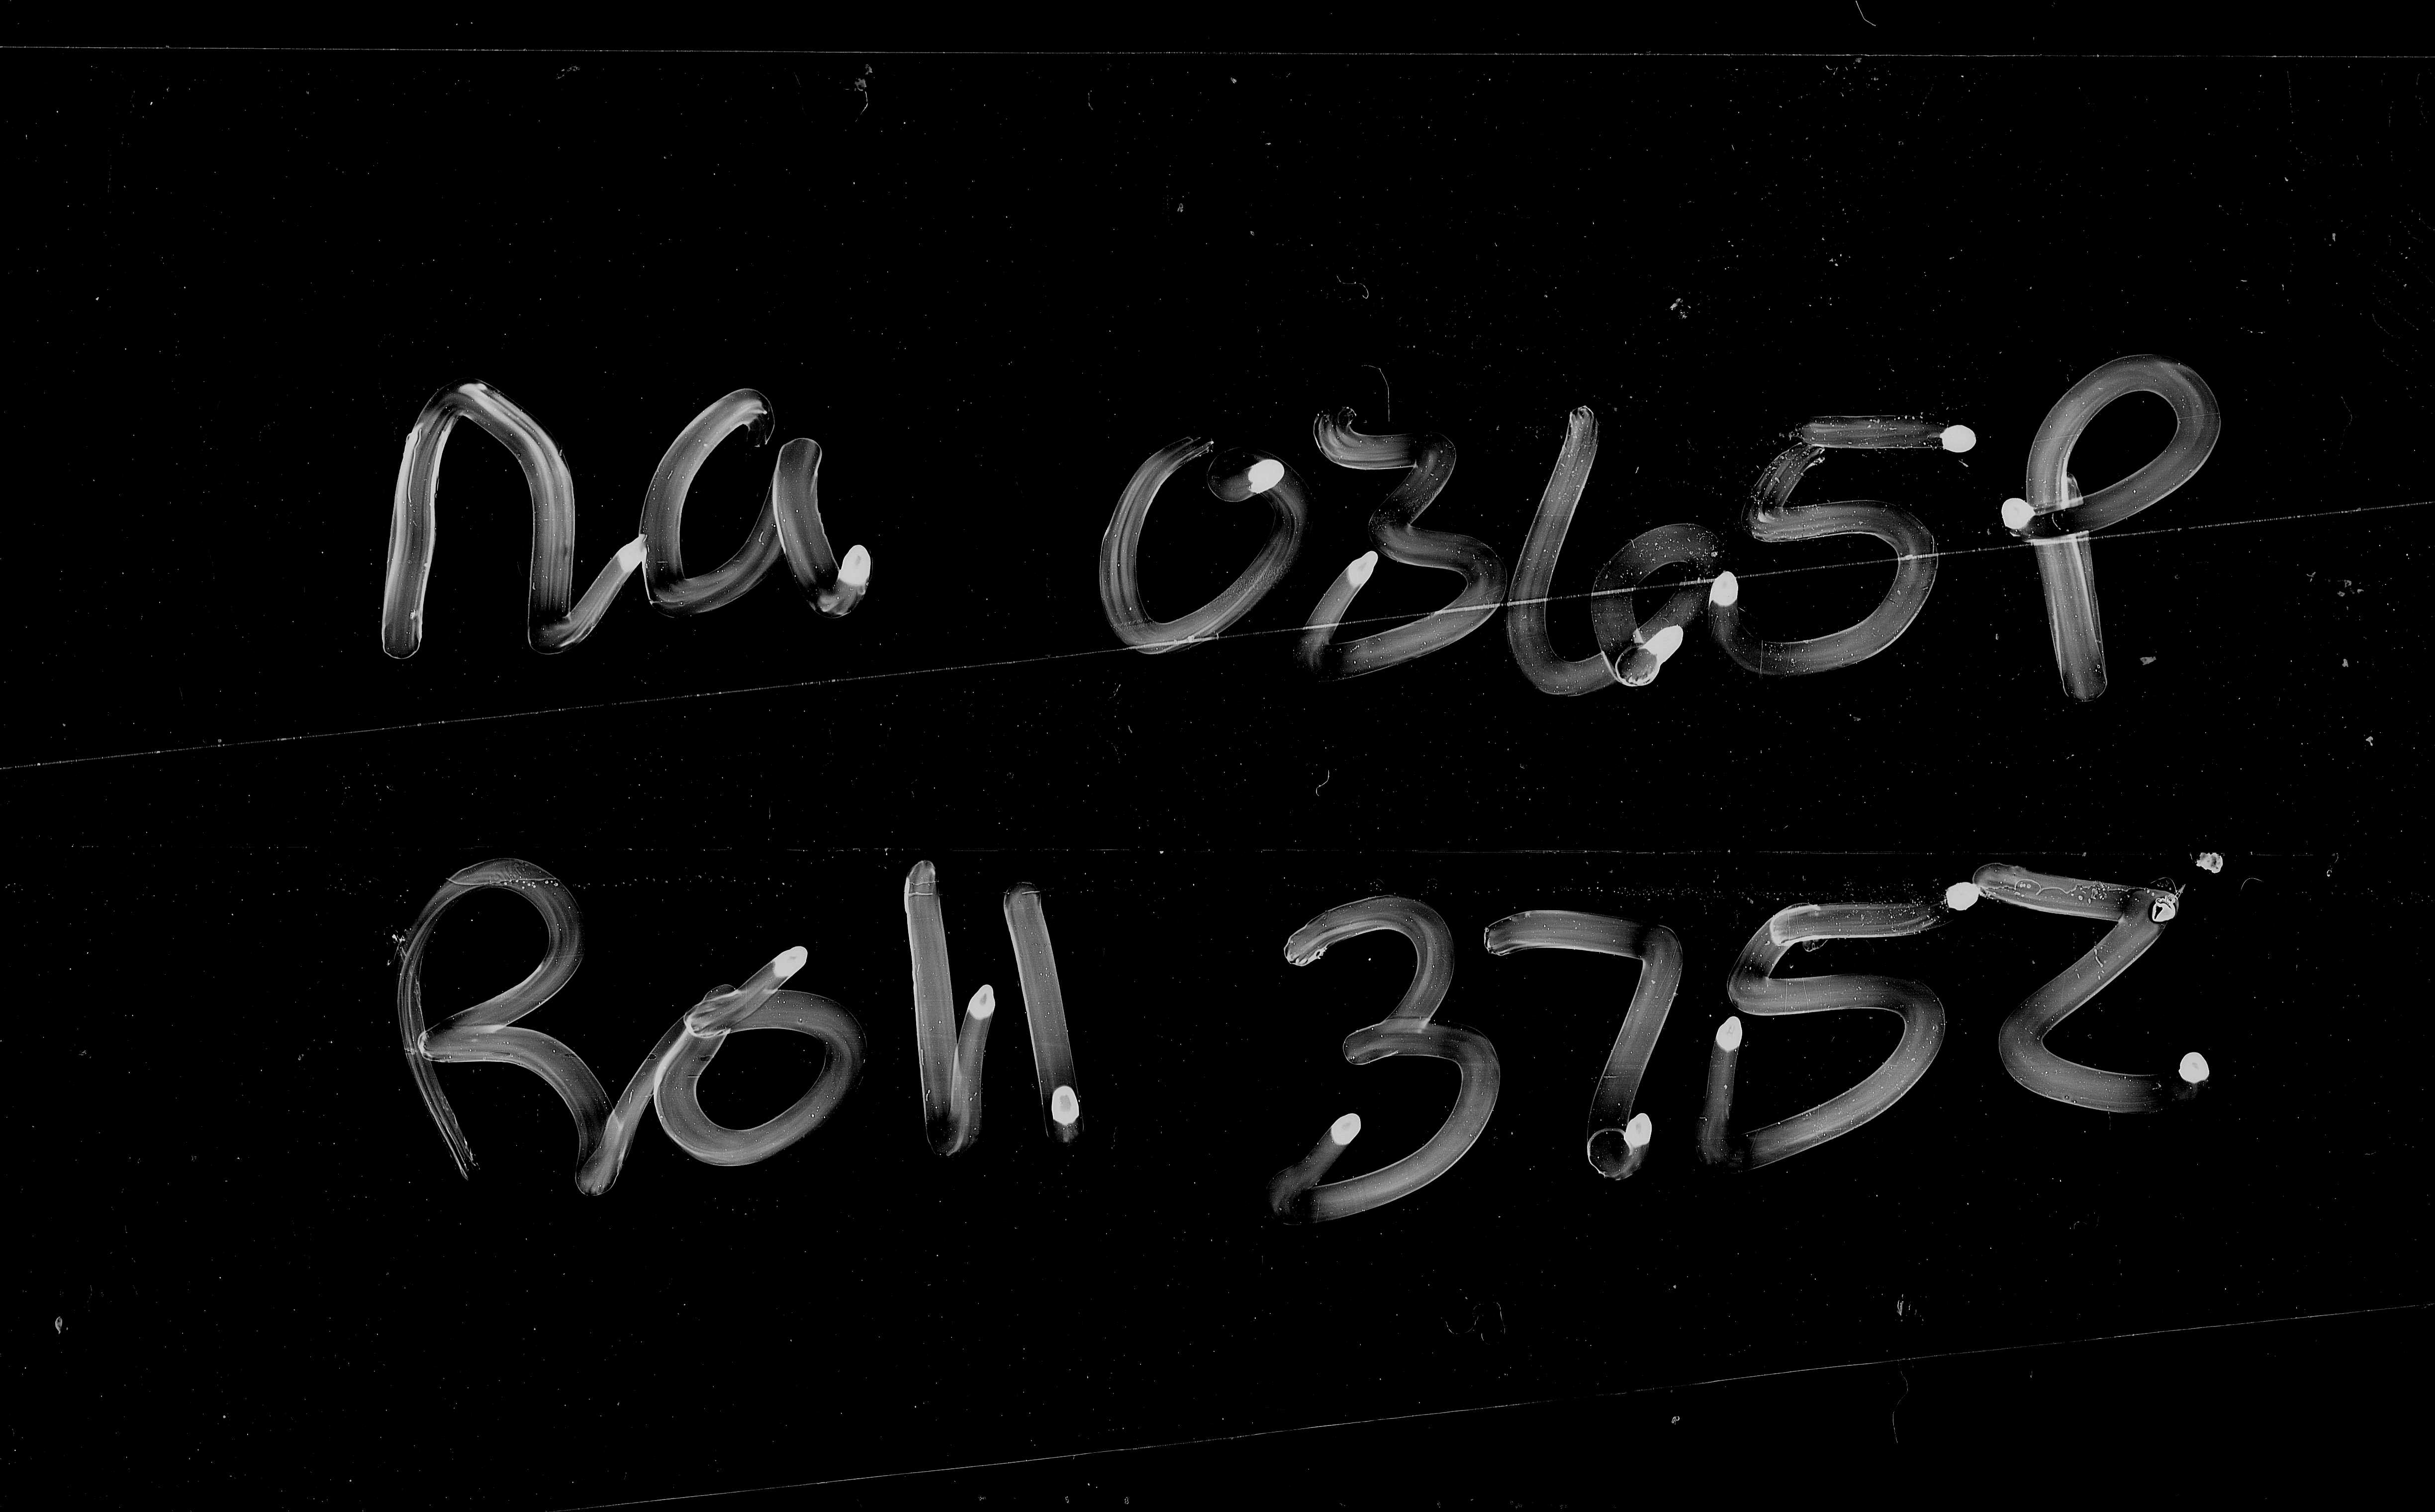 na 0365P
Roll 3752